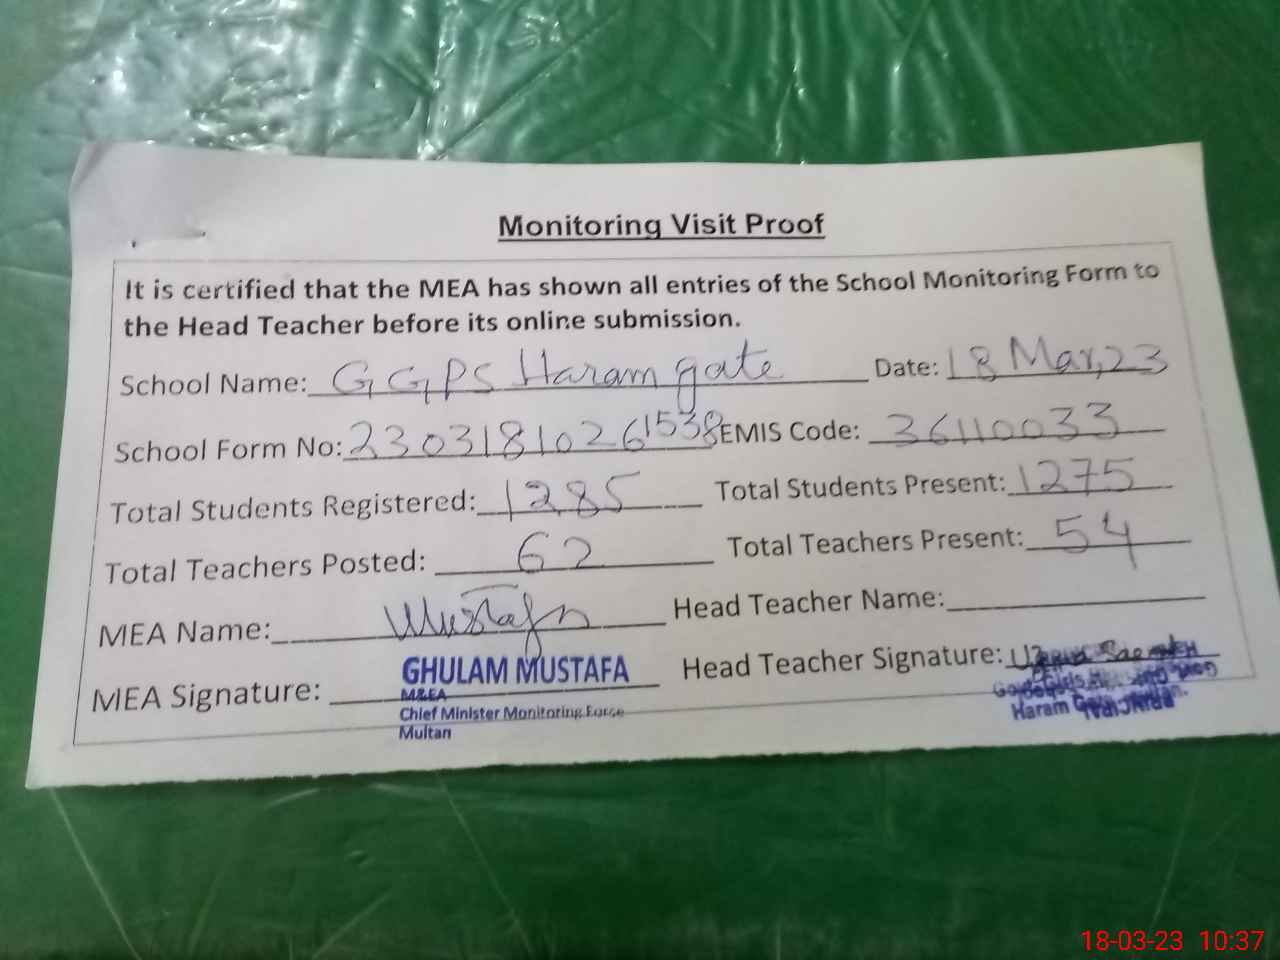 Monitoring Visit Proof
It is certified that the MEA has shown all entries of the School Monitoring Form to
the Head Teacher before its online submission.
School Name: GGPS Haram gate Date: 18 Mar,23
School Form No: 23031810261538 EMIS Code: 36110033
Total Students Registered: 1285 Total Students Present: 1275
Total Teachers Posted: 62 Total Teachers Present: 54
MEA Name: Mustafa Head Teacher Name:
MEA Signature: GHULAM MUSTAFA Head Teacher Signature:
M&EA
Chief Minister Monitoring Force
Multan
Haram
18-03-23 10:37